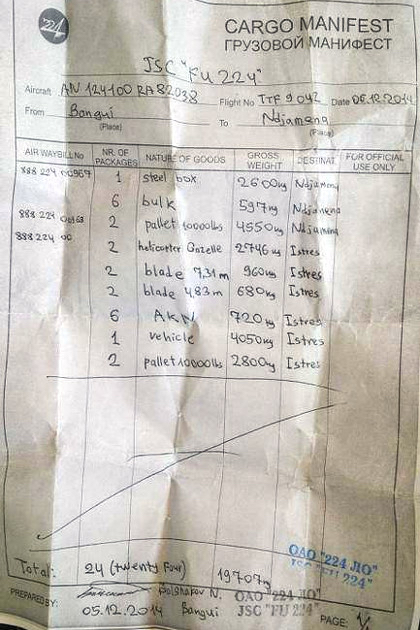 224
CARGO MANIFEST
ГРУЗОВОЙ МАНИФЕСТ
JSC "FU 224"
Aircraft AN 124-100 RA 82038 Flight No TTF 9042 Date 05.12.2014
From Bangui To Ndjamena
(Place) (Place)
AIR WAYBILL No NR. OF PACKAGES NATURE OF GOODS GROSS WEIGHT DESTINAT. FOR OFFICIAL USE ONLY
888 224 00967 1 steel box 2600kg Ndjamena
6 bulk 597kg Ndjamena
888 224 00968 2 pallet 10000lbs 4550kg Ndjamena
888 224 00 2 helicopter Gazelle 2746kg Istres
2 blade 7,31 m 960kg Istres
2 blade 4,83 m 680kg Istres
6 AKN 720kg Istres
1 vehicle 4050kg Istres
2 pallet 10000lbs 2800kg Istres
Total: 24 (twenty Four) 19707kg
ОАО "224 ЛО"
JSC "FU 224"
PREPARED BY: Bolshakov N. ОАО "224 ЛО"
05.12.2014 Bangui JSC "FU 224"
PAGE: